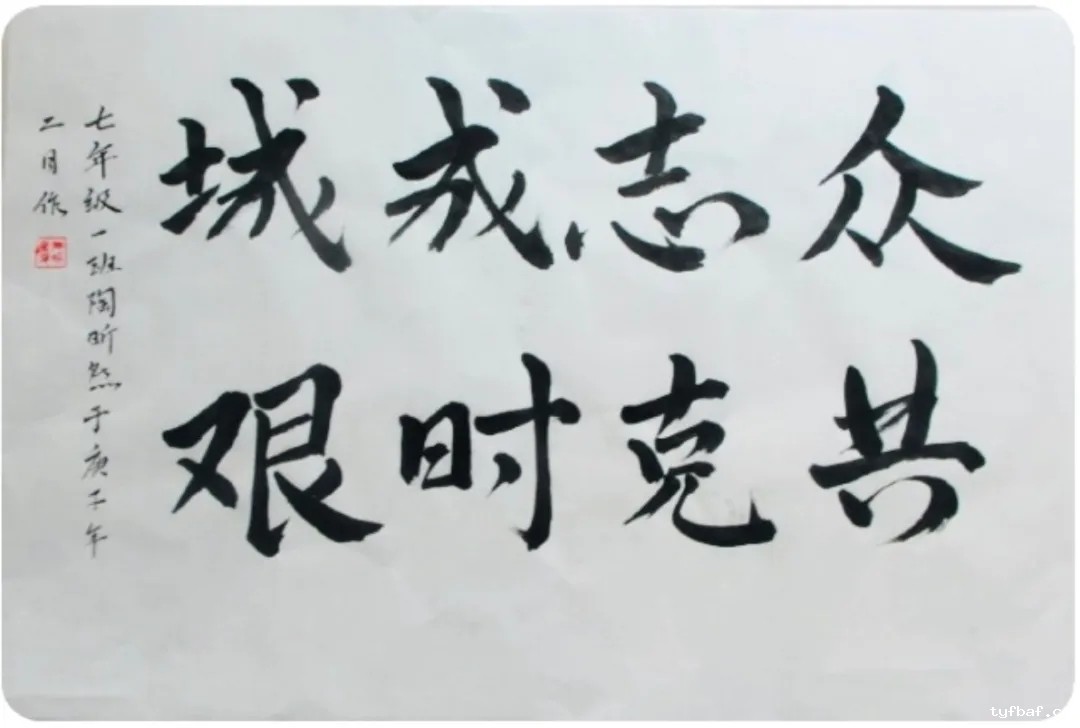 众志成城
共克时艰
七年级一班陶昕然于庚子年
二月作